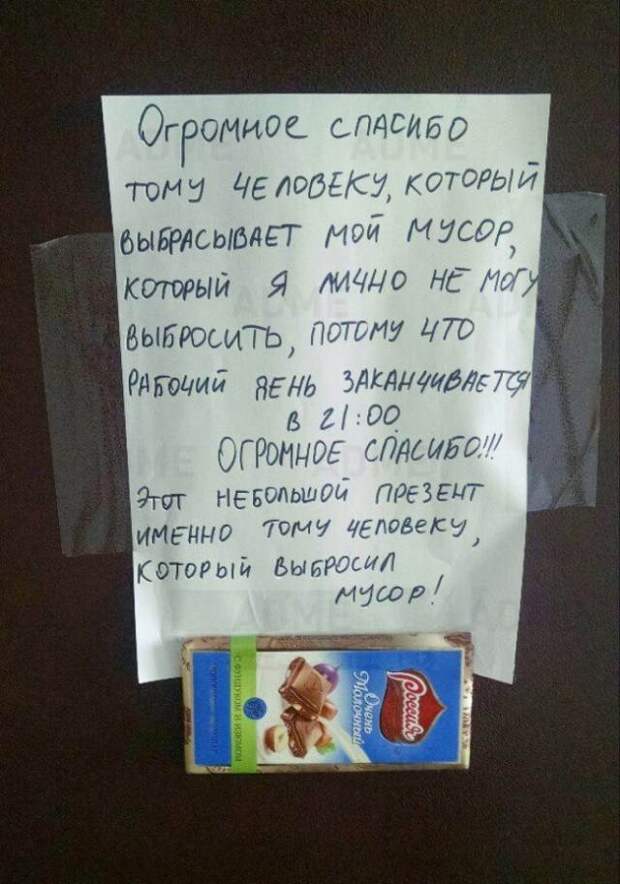 Огромное спасибо
тому человеку, который
выбрасывает мой мусор,
который я лично не могу
выбросить, потому что
рабочий день заканчивается
в 21:00
Огромное спасибо!!!
Этот небольшой презент
именно тому человеку,
который выбросил
мусор!
Россия
Очень
Молочный
С фундуком и изюмом
ADME